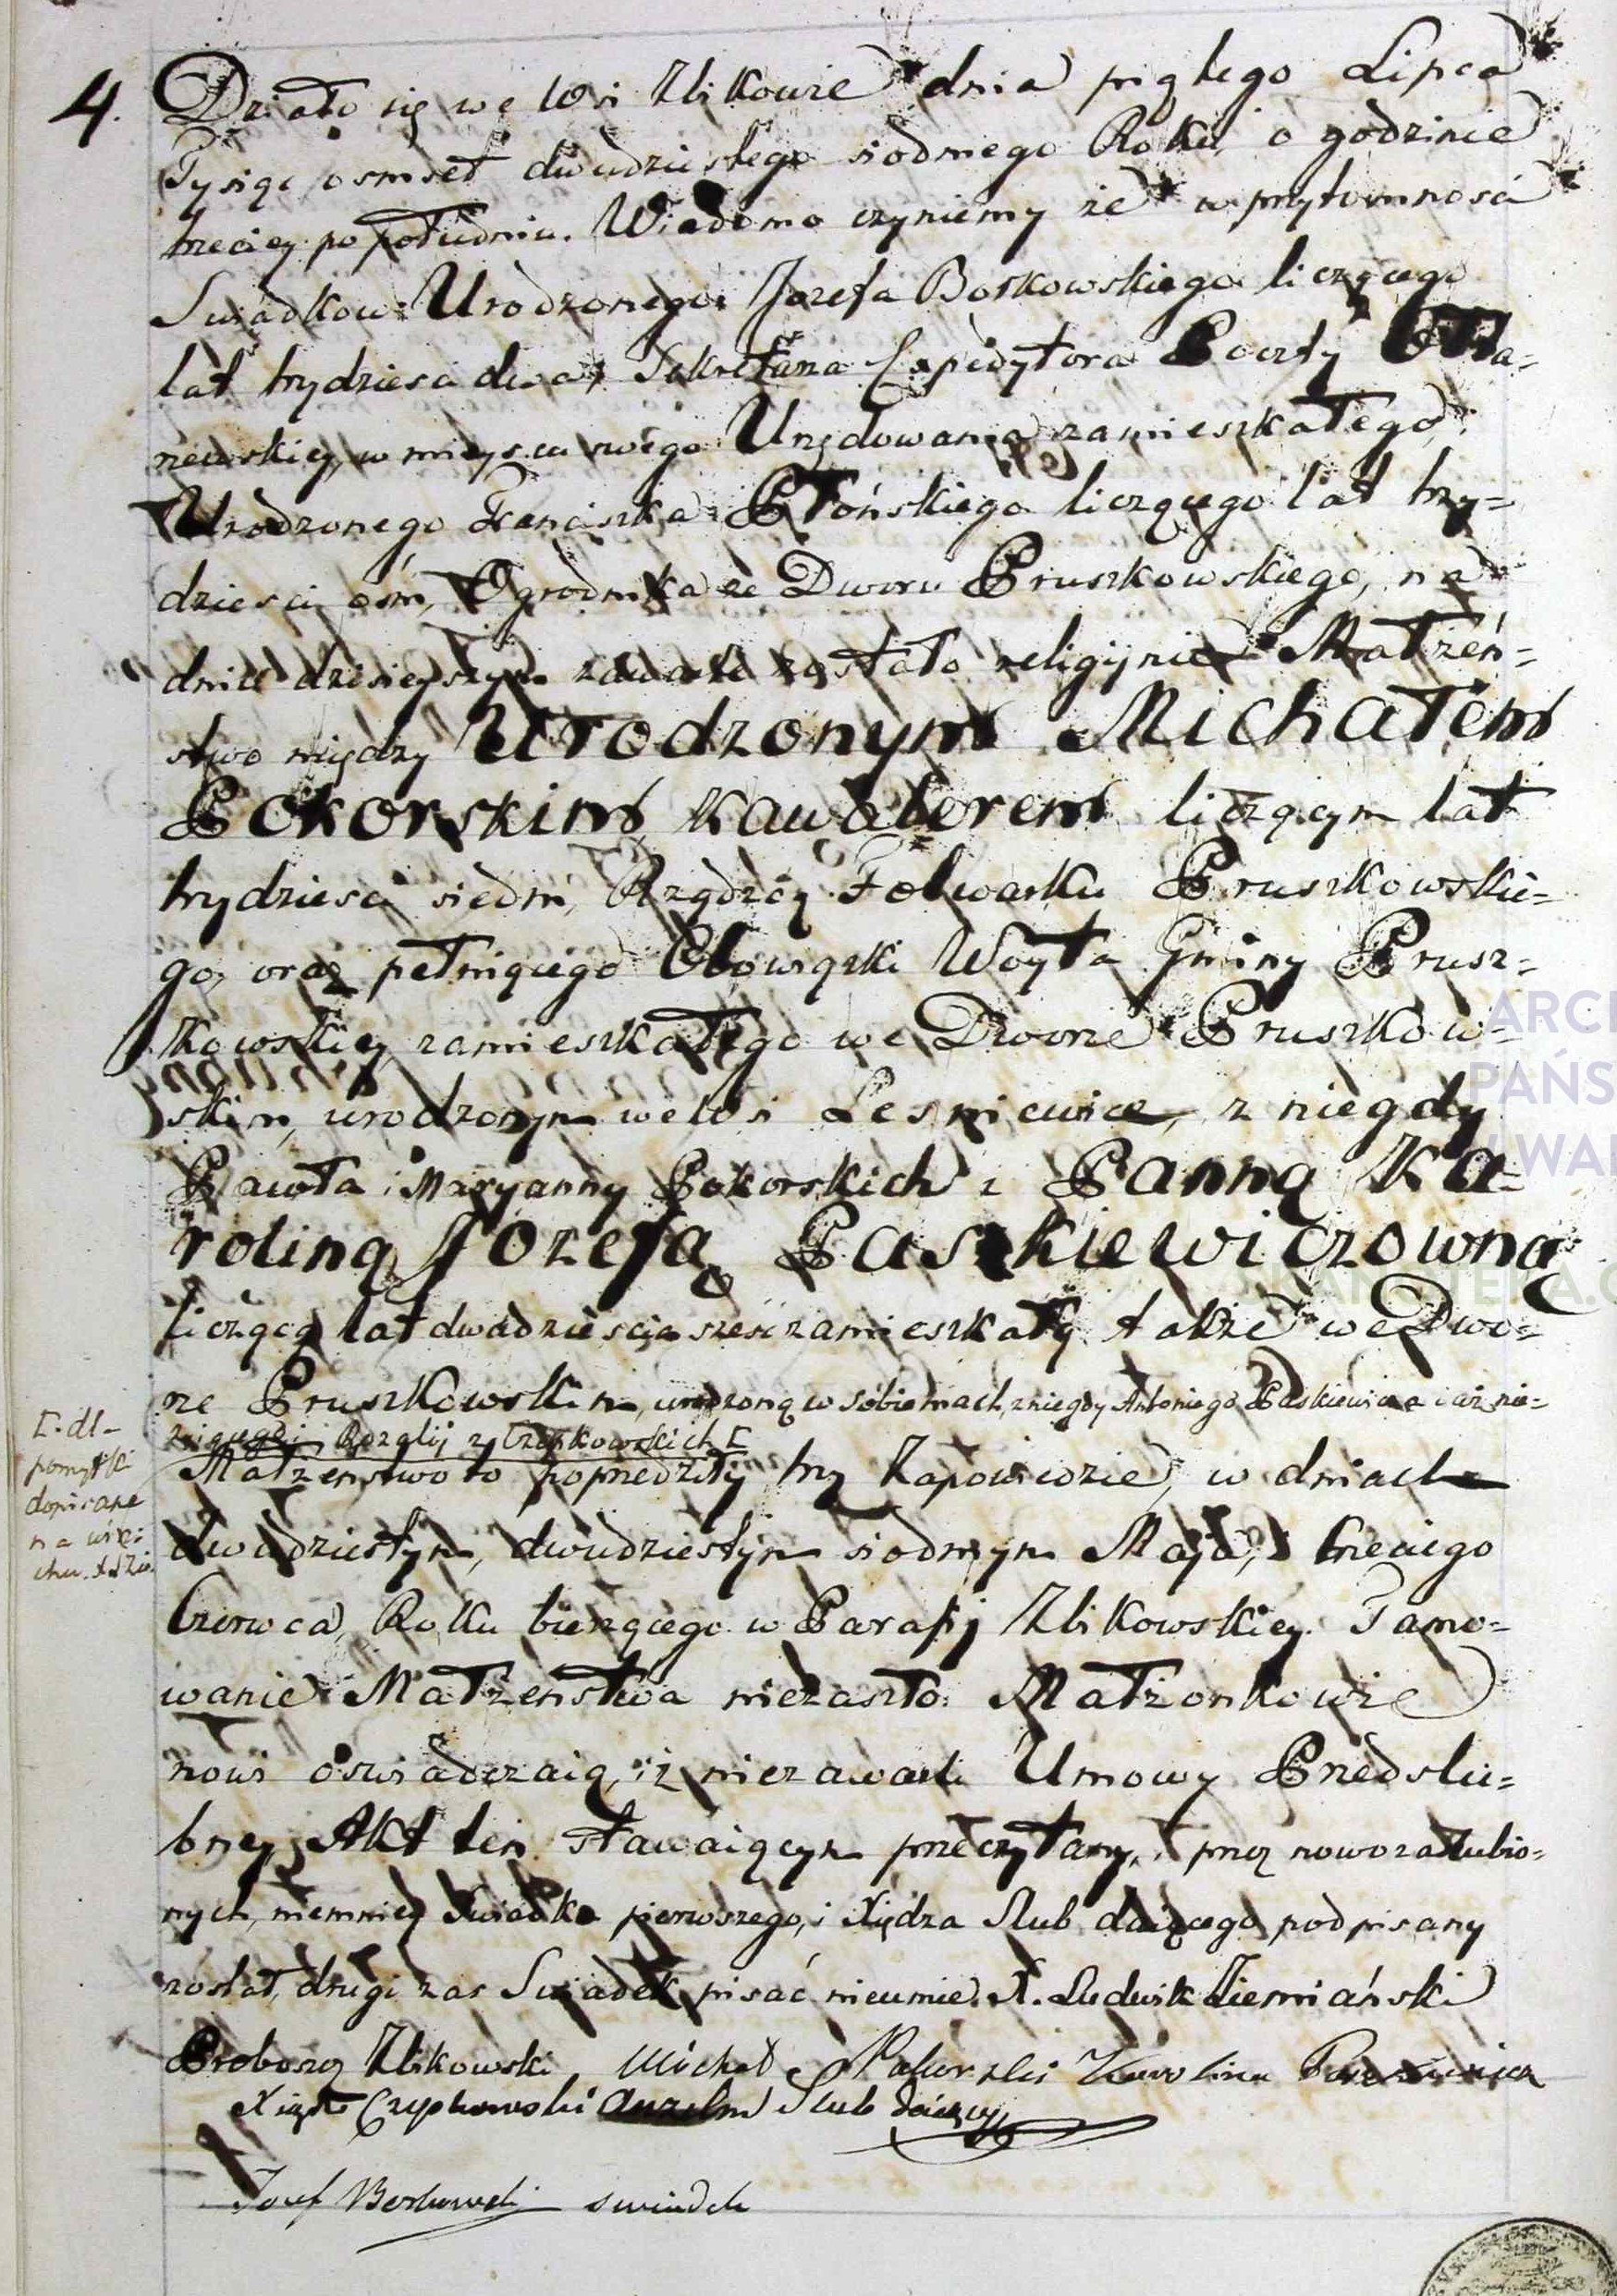 4. Działo się we Wsi Zbikowie dnia piątego Lipca
Tysiąc osmset dwudziestego siodmego Roku o godzinie
trzeciey po południu. Wiadomo czyniemy że w przytomnosci
Swiadkow: Urodzonego Jozefa Borkowskiego liczącego
lat trzydziesci dwa, Sekretarza Expedytora Poczty Ołta-
rzewskiey, w mieyscu swego Urzędowania zamieszkałego;
Urodzonego Franciszka Płońskiego liczącego lat trzy=
dziesci ośm, Ogrodnika ze Dworu Pruszkowskiego, na
dniu dzisieyszym zawarte zostało religijnie Małżeń=
stwo między Urodzonym Michałem
Pokorskim, Kawalerem liczącym lat
trzydziesci siedm, Rządzcą Folwarku Pruszkowskie=
go, oraz pełniącego Obowiązki Woyta Gminy Prusz=
kowskiey zamieszkałego we Dworze Pruszkow=
skim, urodzonym we Wsi Lesniewice, z niegdy
Pawła i Maryanny Pokorskich: z Panną Ka=
roliną Jozefą Paszkiewiczowną
liczącą lat dwadziescia szesć zamieszkałą także we Dwo=
rze Pruszkowskim, urodzoną w Sobiemach, z niegdy Antoniego Paskiewicza i już nie=
żyiącegoi Rozalij z Czepkowskich [
[. dl-
pomyłki
dopisane
na wierz=
chu.
Małżenstwo to poprzedziły trzy Zapowiedzie, w dniach
dwudziestym, dwudziestym siodmym Maja, i trzeciego
Czerwca, Roku bieżącego w Parafij Zbikowskiey. Tamo=
wanie Małżeństwa niezaszło. Małżonkowie
nowi oswiadczaią, iż niezawarli Umowy Przedslu=
bney. Akt ten stawaiącym przeczytany, i przez nowozaslubio=
nych, niemniey Swiadka pierwszego, i Xiędza Slub daiącego podpisany
został, drugi zas Swiadek pisać nieumie. X. Ludwik Ziemiański
Proboszcz Zbikowski Michał Pokorski Karolina Paszkiewicz
Xiądz Czepkowski Anzelm Slub daiący
Jozef Borkowski swiadek
ARCH
PAŃS
WAR
SKANOTEKA.G